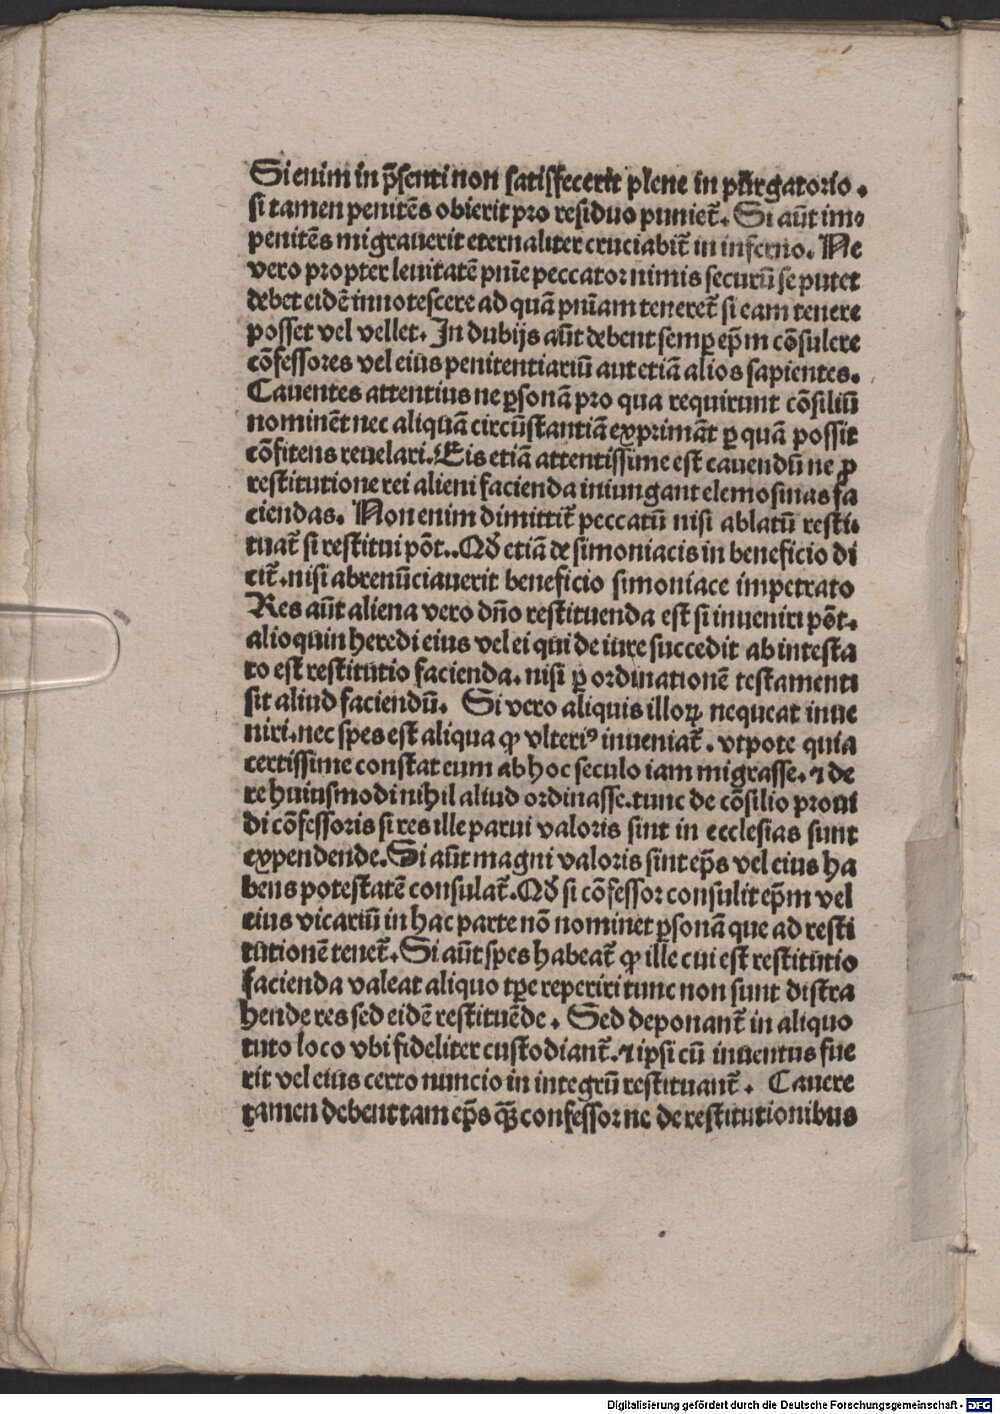 Si enim in p̄senti non satisfecerit plene in purgatorio .
si tamen penitēs obierit pro residuo punieť. Si aūt im⸗
penitēs migrauerit eternaliter cruciabiť in inferno. Ne
vero propter leuitatē pnīe peccator nimis securū se putet
debet eidē innotescere ad quā pnīam tenereť si eam tenere
posset vel vellet. In dubijs aūt debent semꝑ ep̄m cōsulere
cōfessores vel eius penitentiariū aut etiā alios sapientes.
Cauentes attentius ne ꝑsonā pro qua requirunt cōsiliū
nominēt nec aliquā circūstantiā exprimāt ꝑ quā possit
cōfitens reuelari. Eis etiā attentissime est cauendū ne ꝓ
restitutione rei alieni facienda iniungant elemosinas fa
ciendas. Non enim dimittiť peccatū nisi ablatū resti⸗
tuať si restitui pōt.. Qď etiā de simoniacis in beneficio di
ciť. nisi abrenūciauerit beneficio simoniace impetrato
Res aūt aliena vero dn̄o restituenda est si inueniri pōt.
alioquin heredi eius vel ei qui de iure succedit ab intesta
to est restitutio facienda. nisi ꝑ ordinationē testamenti
sit aliud faciendū. Si vero aliquis illoꝝ nequeat inue
niri. nec spes est aliqua ꝙ vlteriꝰ inueniať. vtpote quia
certissime constat eum ab hoc seculo iam migrasse. ⁊ de
re huiusmodi nihil aliud ordinasse. tunc de cōsilio proui
di cōfessoris si res ille parui valoris sint in ecclesias sunt
expendende. Si aūt magni valoris sint ep̄s vel eius ha
bens potestatē consulať. Qď si cōfessor consulit ep̄m vel
eius vicariū in hac parte nō nominet ꝑsonā que ad resti
tutionē teneť. Si aūt spes habeať ꝙ ille cui est restitutio
facienda valeat aliquo tꝑe reperiri tunc non sunt distra
hende res sed eidē restituēde . Sed deponanť in aliquo
tuto loco vbi fideliter custodianť. ⁊ ipsi cū inuentus fue
rit vel eius certo nuncio in integrū restituanť . Cauere
tamen debent tam ep̄s qꝫ̄ confessor ne de restitutionibus
Digitalisierung gefördert durch die Deutsche Forschungsgemeinschaft - DFG